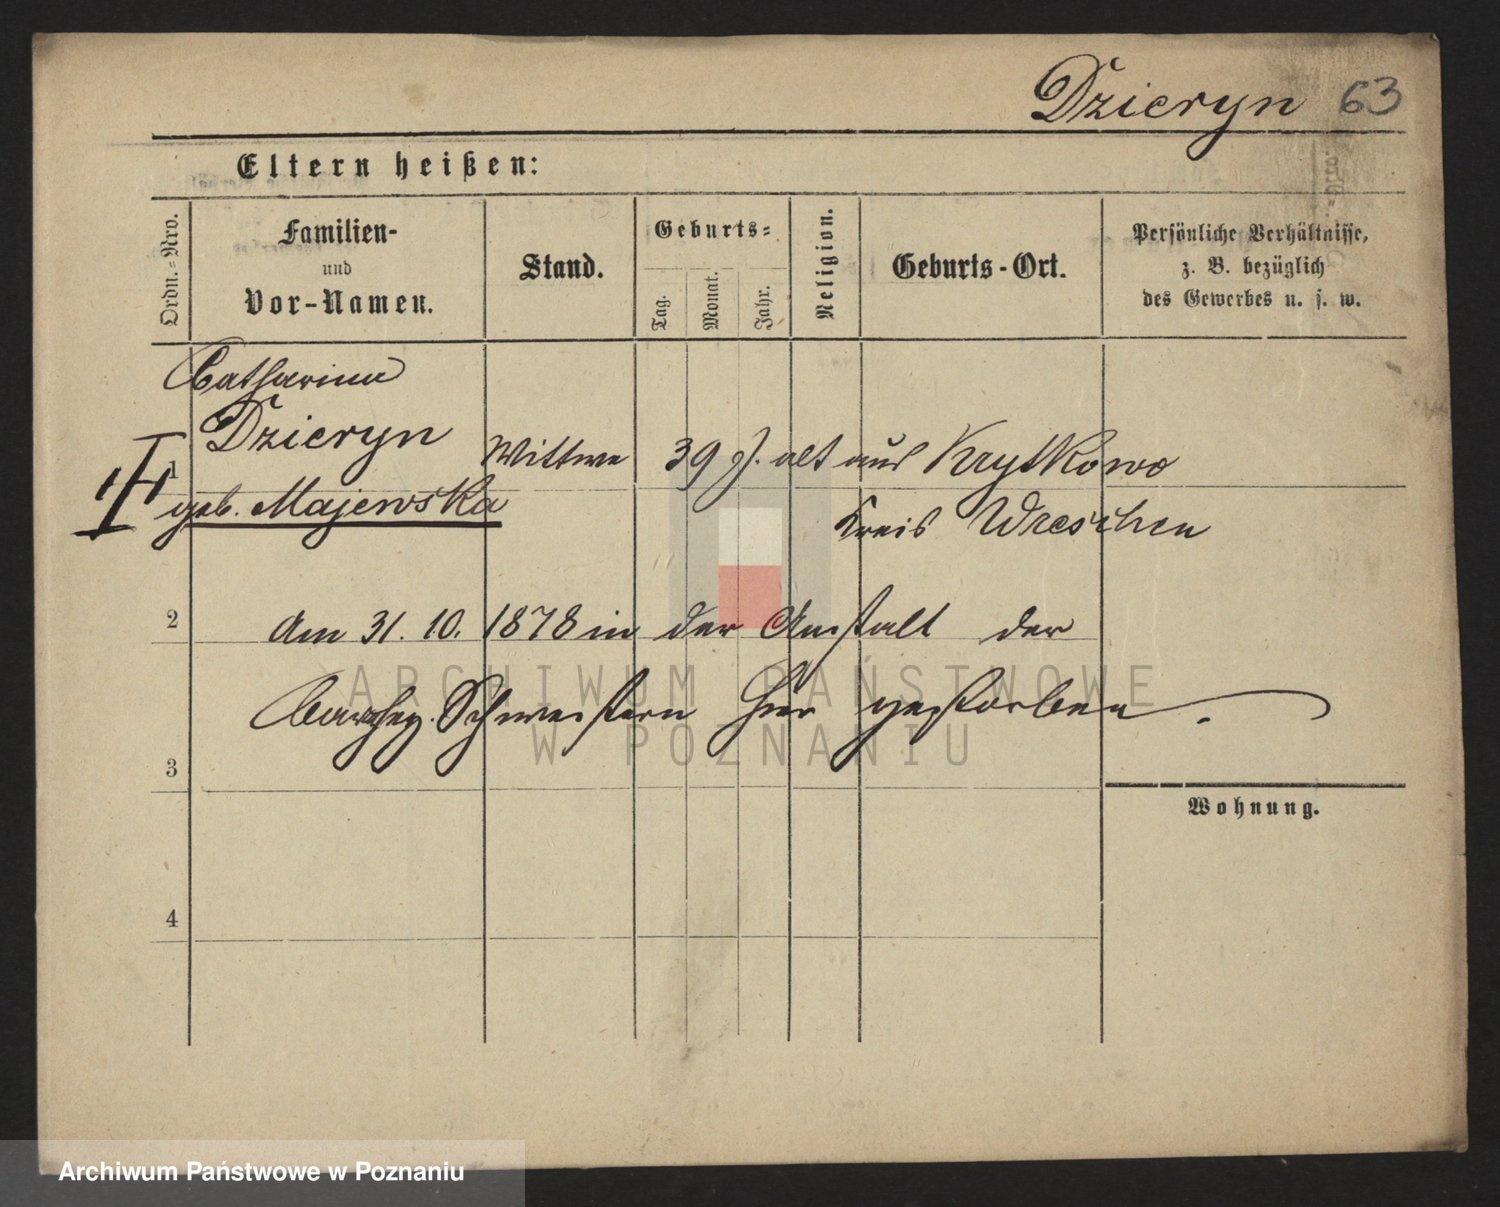 Dzieryn 63
Eltern heißen:
Ordn.=Nro.
Familien-
und
Vor-Namen.
Stand.
Geburts=
Tag.
Monat.
Jahr.
Religion.
Geburts-Ort.
Persönliche Verhältnisse,
z. B. bezüglich
des Gewerbes u. s. w.
Catharina
Dzieryn
1 Wittwe 39 J. alt aus Krytkowo
geb. Majewska Kreis Wreschen
2 Am 31. 10. 1878 in der Anstalt der
barmhzg. Schwestern hier gestorben.
3
Wohnung.
4
ARCHIWUM PAŃSTWOWE
W POZNANIU
Archiwum Państwowe w Poznaniu